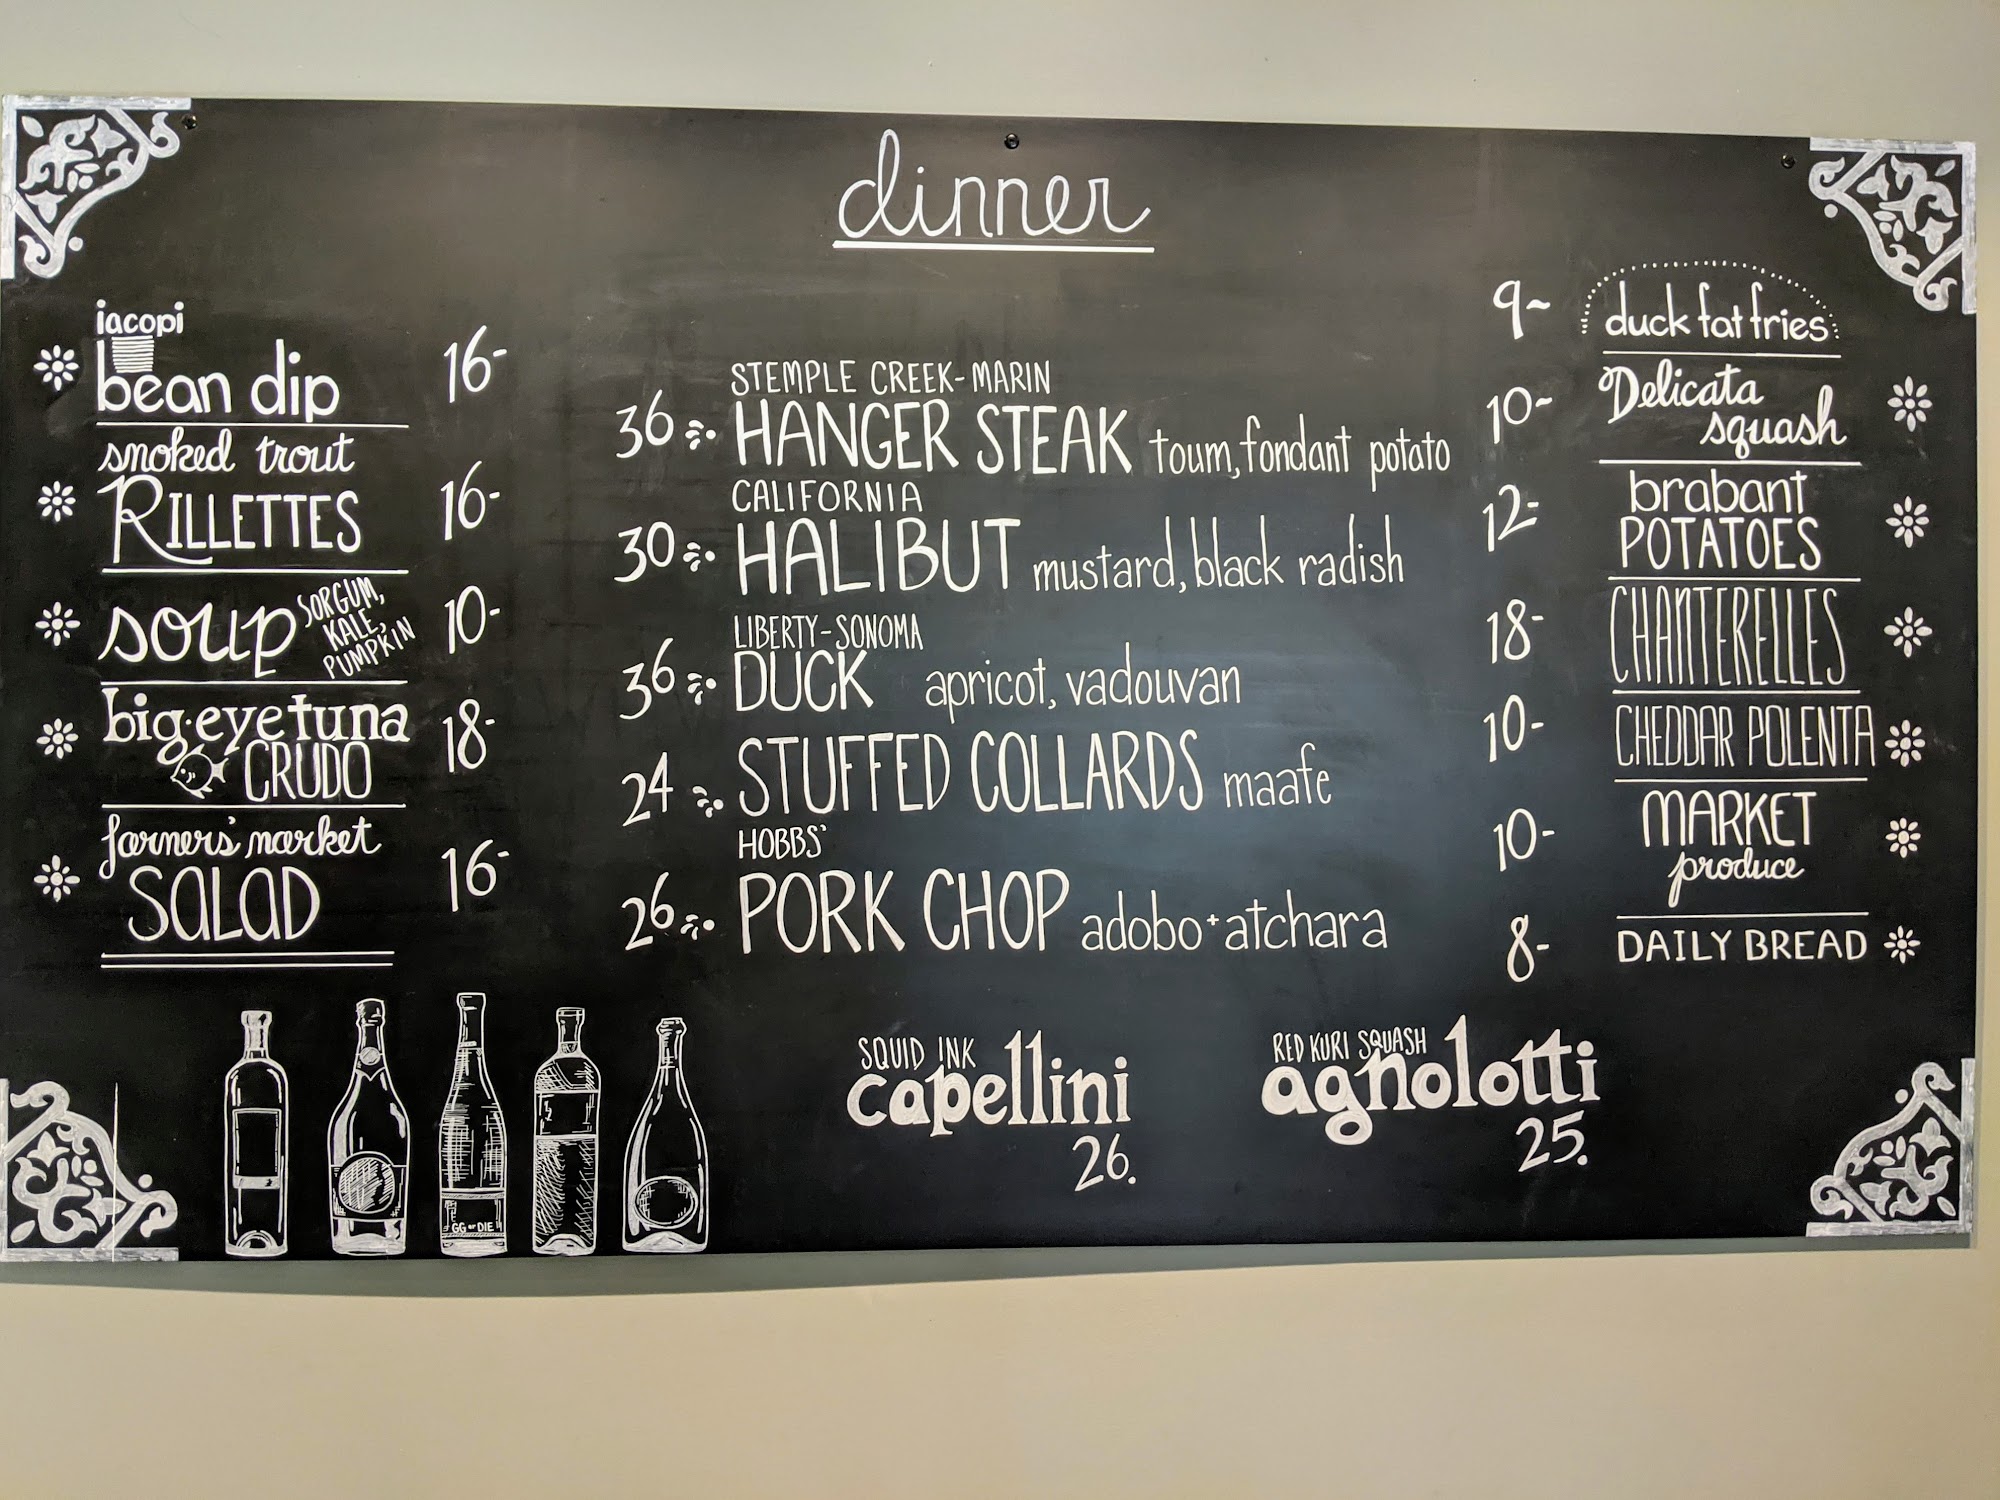 dinner
iacopi
bean dip 16-
smoked trout
RILLETTES 16-
soup SORGUM, KALE, PUMPKIN 10-
big·eye tuna
CRUDO 18-
farmers' market
SALAD 16-
STEMPLE CREEK-MARIN
36 HANGER STEAK toum, fondant potato
CALIFORNIA
30 HALIBUT mustard, black radish
LIBERTY-SONOMA
36 DUCK apricot, vadouvan
24 STUFFED COLLARDS maafe
HOBBS'
26 PORK CHOP adobo + atchara
9~ duck fat fries
10~ Delicata
squash
12- brabant
POTATOES
18- CHANTERELLES
10- CHEDDAR POLENTA
10- MARKET
produce
8- DAILY BREAD
SQUID INK
capellini
26.
RED KURI SQUASH
agnolotti
25.
GG or DIE